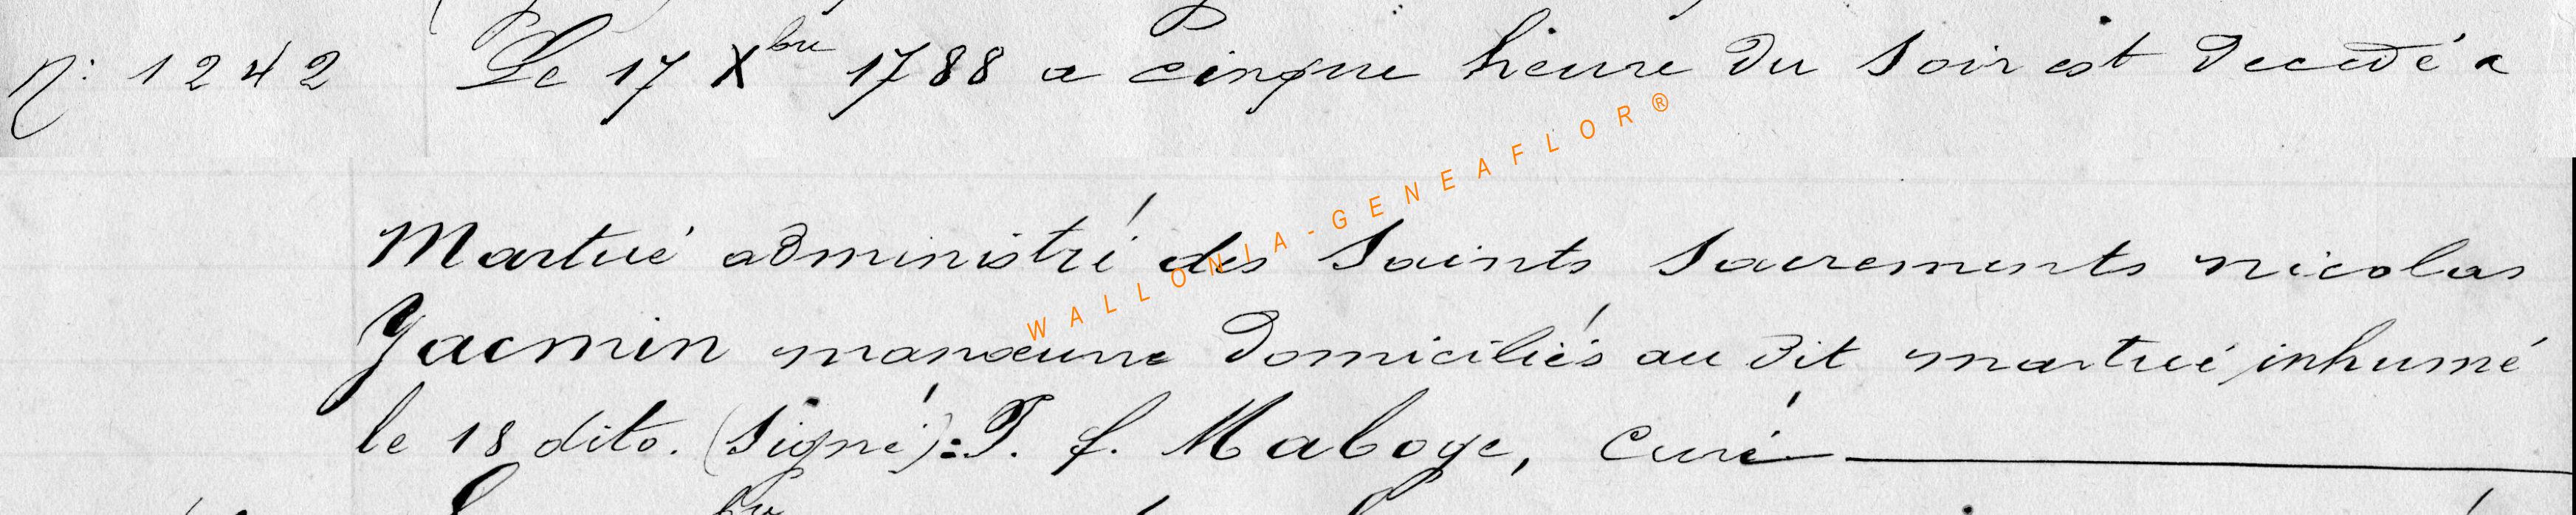 N: 1242 Le 17 Xbre 1788 a cinque heure du Soir est decedé a
Martué administré des Saints Sacrements nicolas
Jacmin manœuvre domiciliés au dit martué inhumé
le 18 dito. (Signé): T. f. Maboge, Curé
WALLONIA-GENEAFLOR®